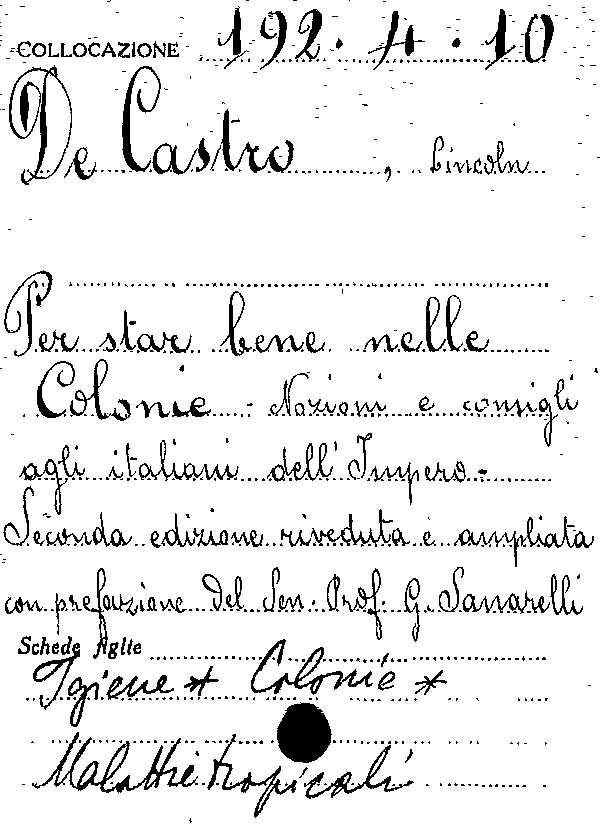 COLLOCAZIONE 192. 4. 10
De Castro, Lincoln
Per star bene nelle
Colonie - Nozioni e consigli
agli italiani dell'Impero -
Seconda edizione riveduta e ampliata
con prefazione del Sen. Prof. G. Sanarelli
Schede figlie
Igiene * Colonie *
Malattie tropicali